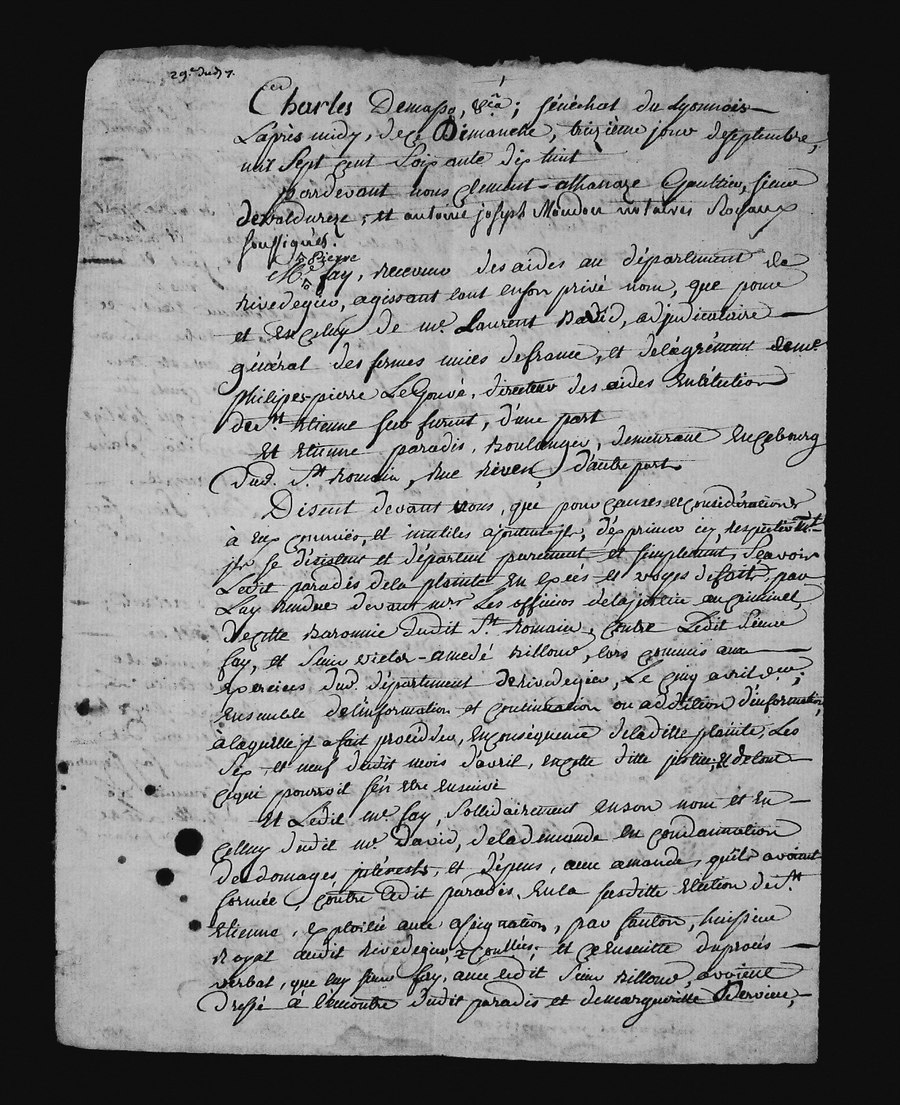 29.e Dud. 7.
Charles Demasso, &ca; sénéchal du Lyonnois
L'aprés midy, de ce Dimanche, treizième jour de septembre,
mil sept cent soixante dix huit
pardevant nous Clement-athanaze Gaultier, sieur
devaldureze, et antoine joseph Mondon notaires Royaux
soussignés.
pierre
Mr. fay, receveur des aides au département de
Rivedegier, agissant tant en son privé nom, que pour
et en celuy de mr. Laurent David, adjudicataire
général des fermes unies de france, et de l'agrément de mr.
philipes-pierre LeGouvé, directeur des aides en l'élection
de st. Etienne sur furent, d'une part
Et Etienne paradis, Boulanger, demeurant en ce bourg
dud. st. Romain, d'autre part
Disent devant nous, que pour causes et considérations
à eux connües, et inutiles d'exprimer icy, respectivemt.
ils se désistent et départent purement et simplement, sçavoir
Ledit paradis de la plainte en excés et voyes de faits, par
Luy rendue devant mrs. Les officiers de la justice criminel
de cette Baronnie dudit st. Romain, Contre Ledit sieur
fay, et sieur victor-amedé Rillow, lors commis aux
exercices dud. département de Rivedegier, Le cinq avril dr.;
Ensemble de l'information et continuation ou addition d'information,
à laquelle il a fait procéder, en conséquence de la ditte plainte, Les
six et neuf dudit mois d'avril, en cette ditte justice, et de tout
ce qui pourroit s'en etre ensuivi
Et Ledit mr. fay, sollidairement en son nom et en
celluy dudit mr. David, de la demande en condamnation
de domages interests, et dépens, avec amande, qu'ils avoient
formée, contre ledit paradis, en la susditte Election de st.
Etienne, exploitée avec assignation, par huissier
Royal audit Rivedegier, et ensuitte du procés
verbal, que luy sieur fay, avec ledit sieur Rillow, avoient
Dressé à l'encontre dudit paradis et de margueritte